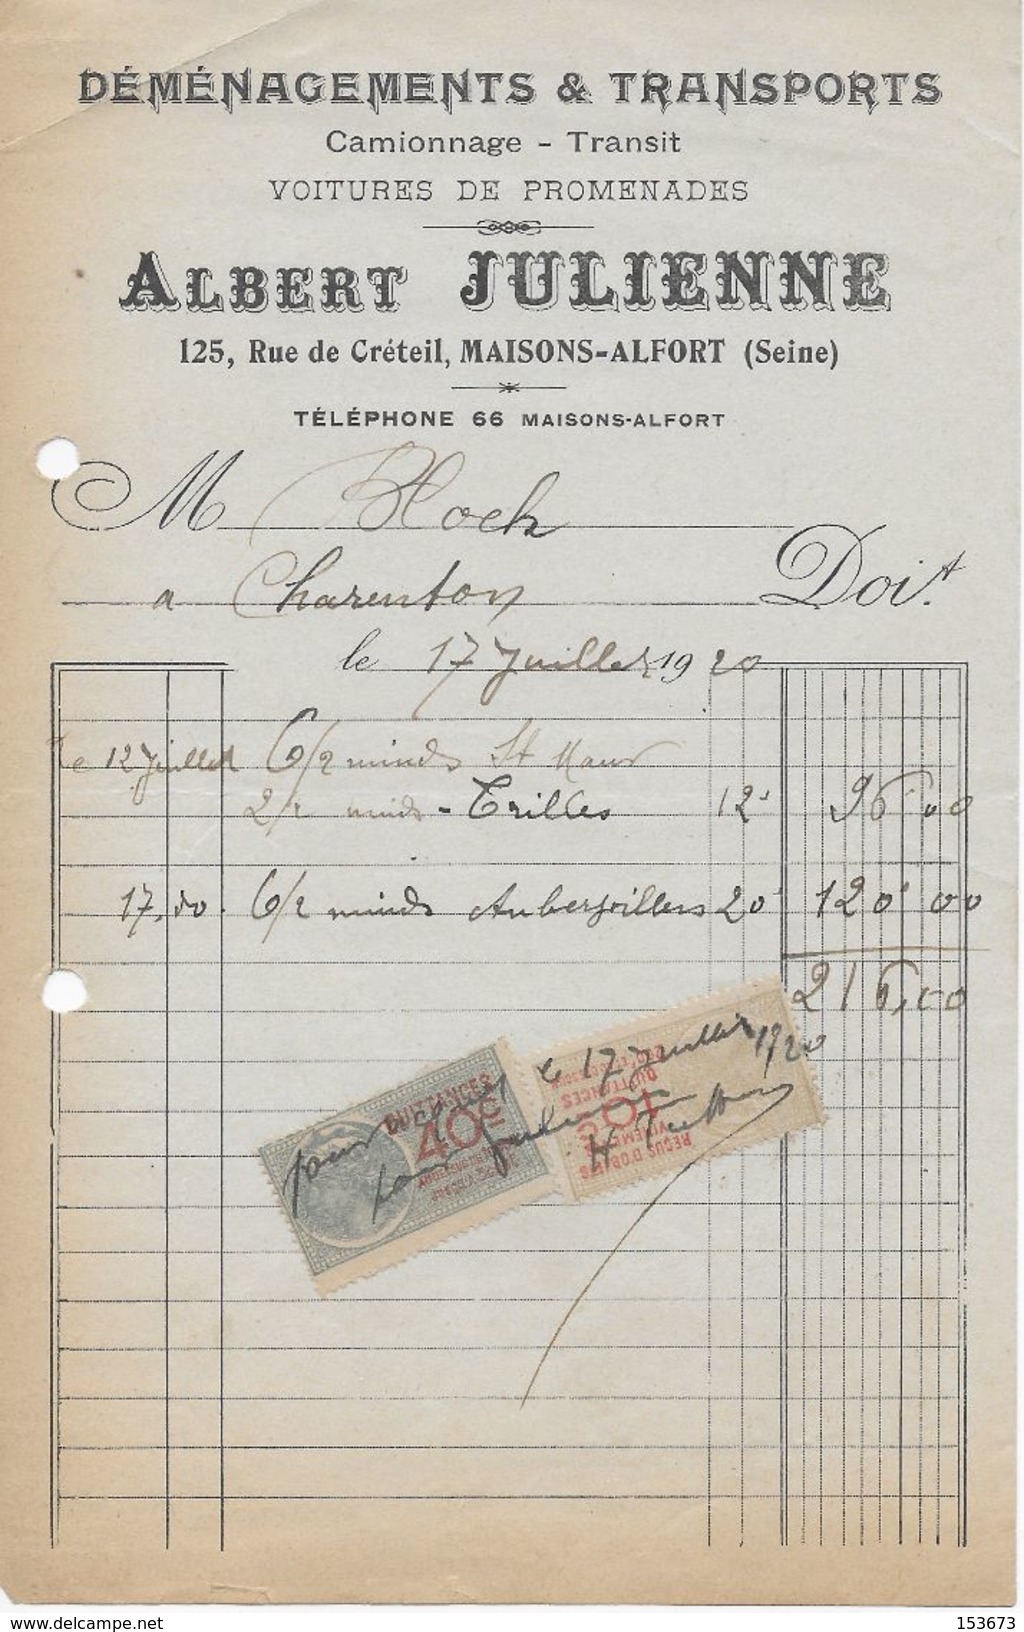 DÉMÉNAGEMENTS & TRANSPORTS
Camionnage - Transit
VOITURES DE PROMENADES
ALBERT JULIENNE
125, Rue de Créteil, MAISONS-ALFORT (Seine)
TÉLÉPHONE 66 MAISONS-ALFORT
M Bloch
a Charenton Doit
le 17 Juillet 1920
le 12 Juillet 6/2 minds St Maur
2/2 minds - 12 96.00
17. 6/2 minds Aubervilliers 20 120 00
216,00
pour acquit le 17 Juillet 1920
QUITTANCES
40c
QUITTANCES
10c
REÇUS D'OBJETS
www.delcampe.net picardiet 153673